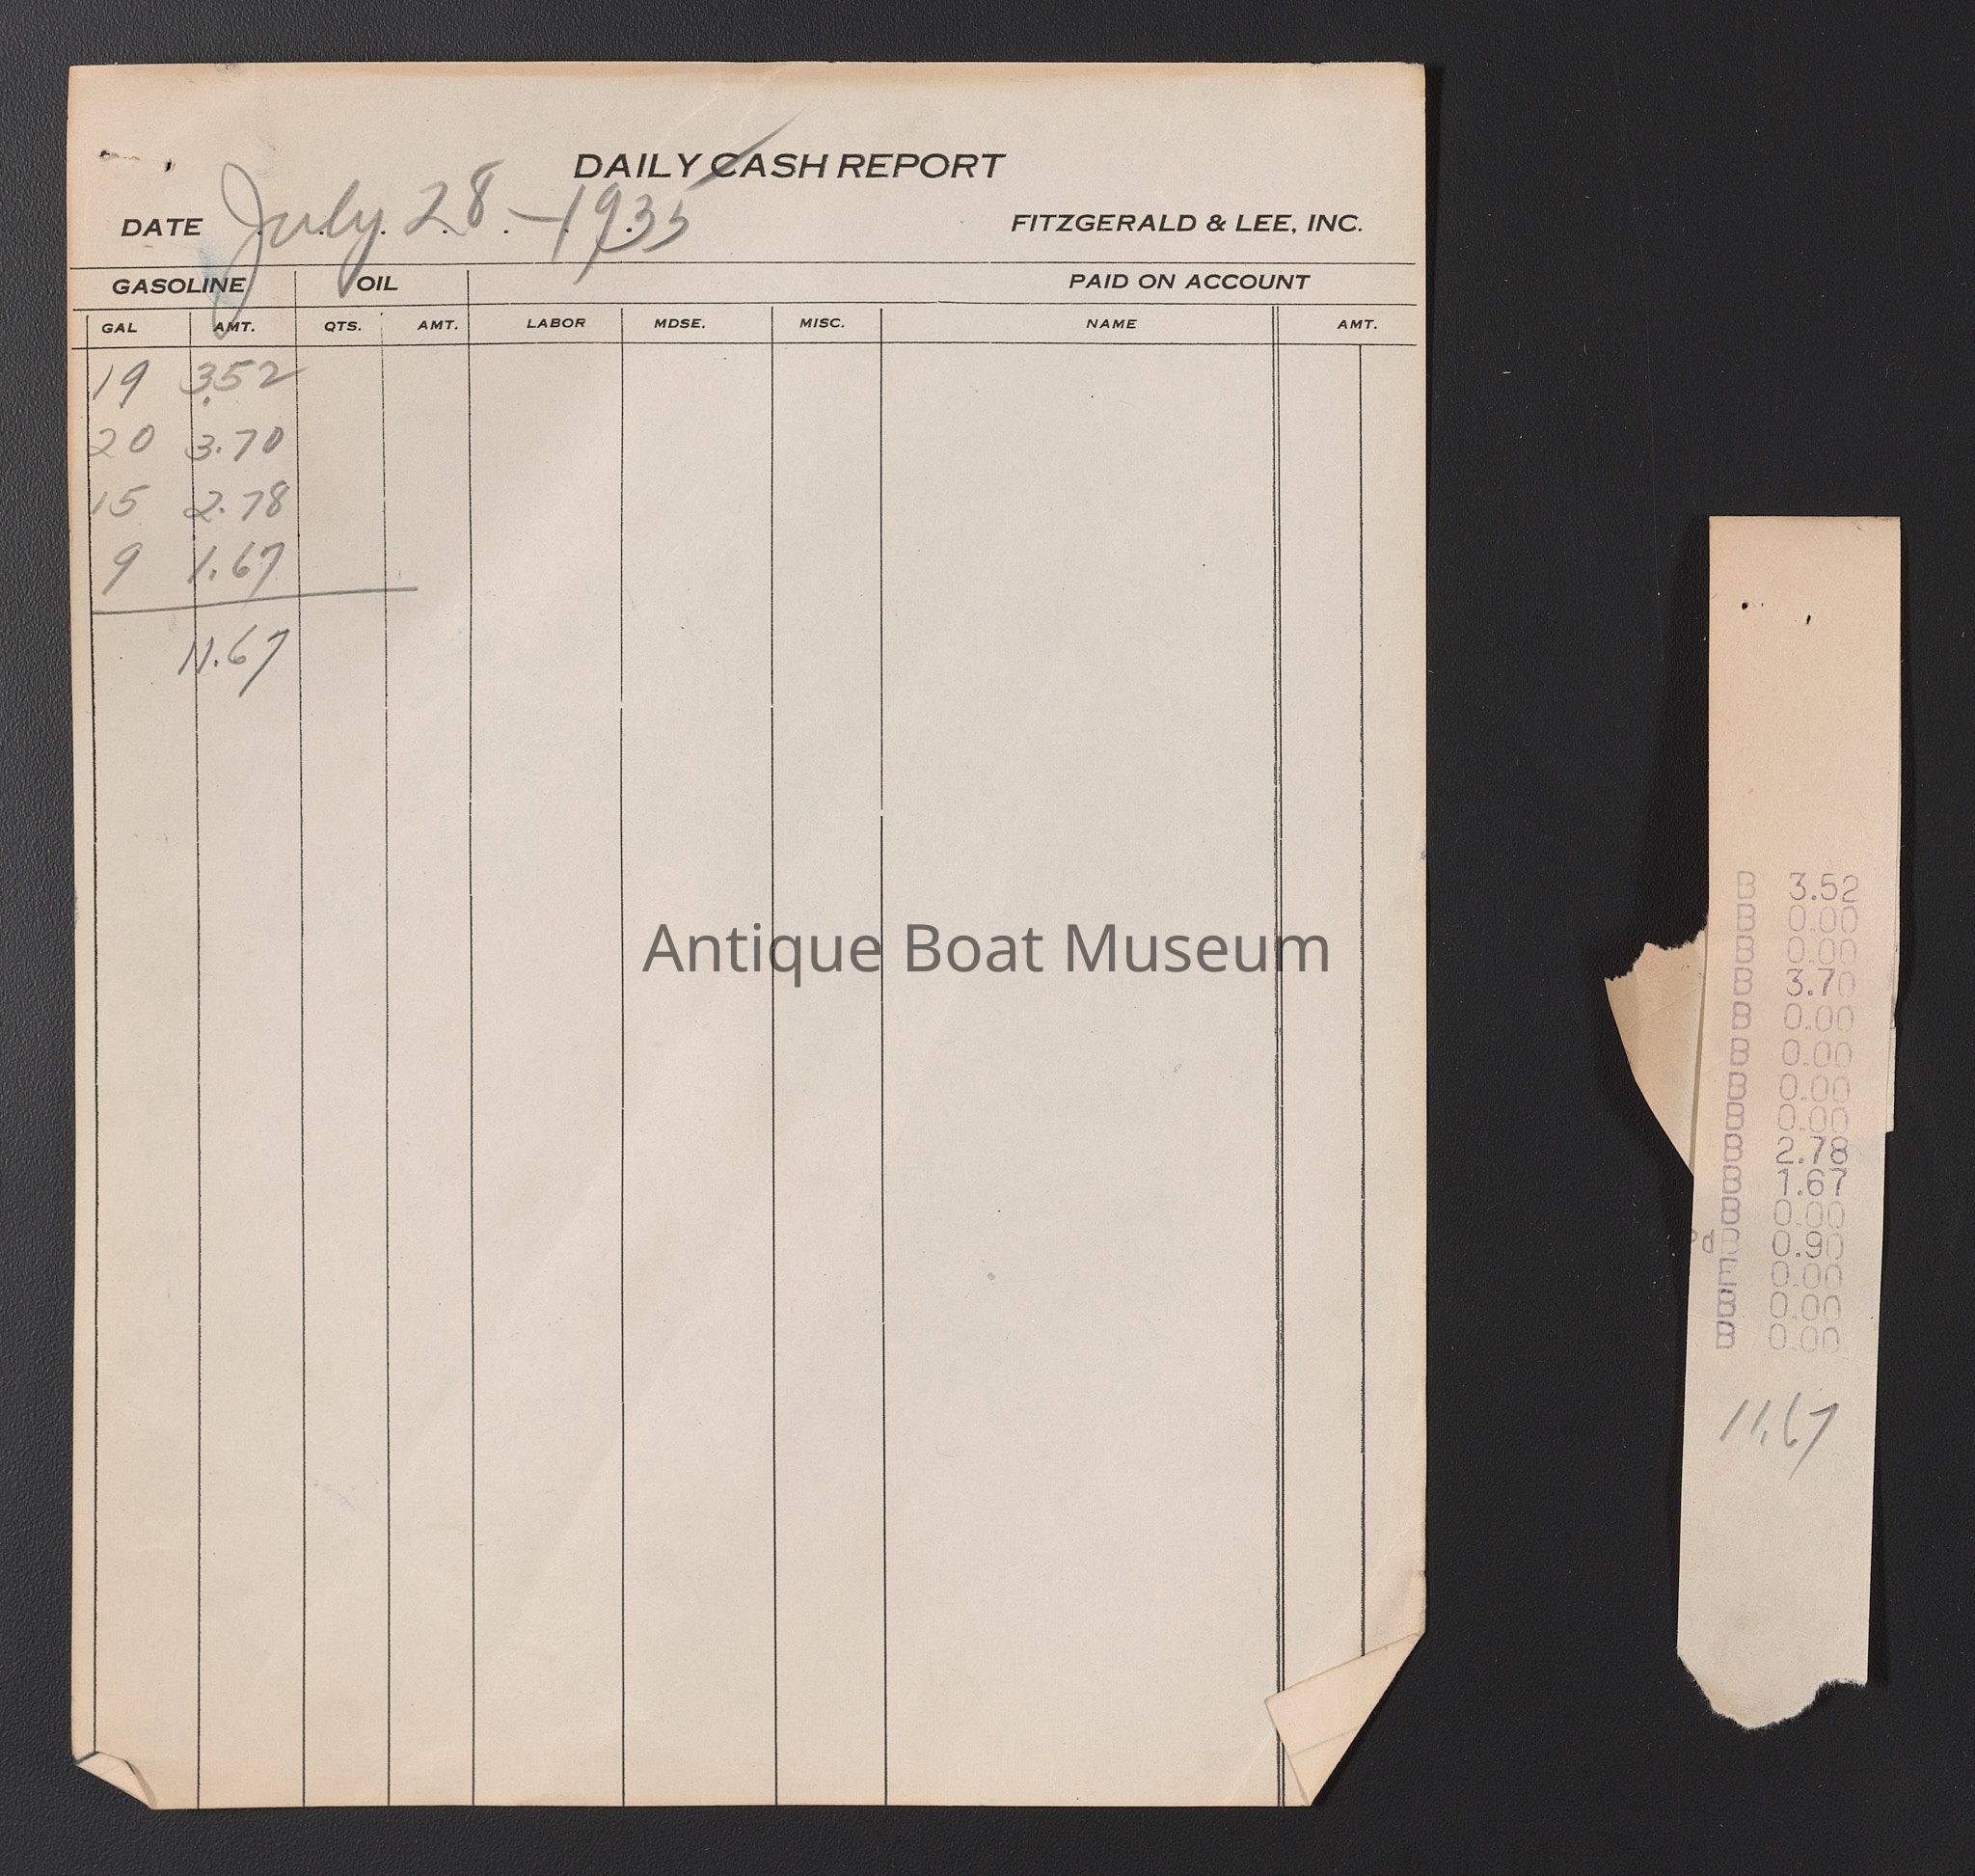 DAILY CASH REPORT
DATE July 28 - 1935 FITZGERALD & LEE, INC.
GASOLINE OIL PAID ON ACCOUNT
GAL AMT. QTS. AMT. LABOR MDSE. MISC. NAME AMT.
19 3.52
20 3.70
15 2.78
9 1.67
11.67
Antique Boat Museum
B 3.52
B 0.00
B 0.00
B 3.70
B 0.00
B 0.00
B 0.00
B 0.00
B 2.78
B 1.67
B 0.00
0.90
E 0.00
B 0.00
B 0.00
11.67